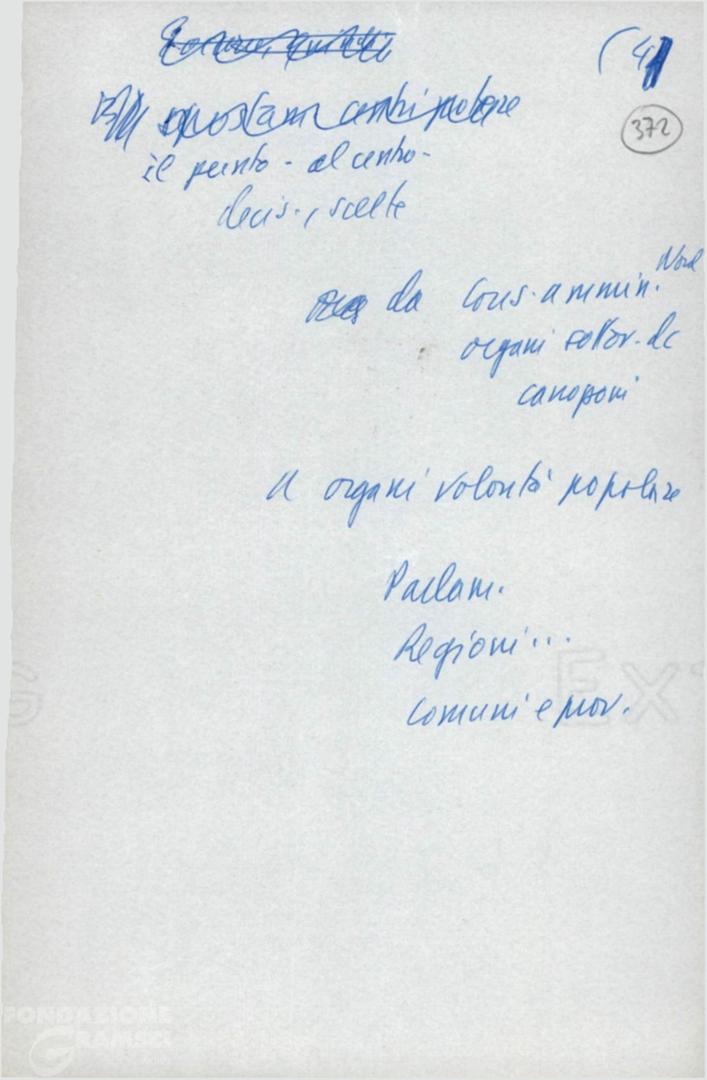 (4
372
spostam centri potere
il punto - al centro -
decis., scelte
da Cons. ammin. Nord
organi sottov. dc
a organi volontà popolare
Parlam.
Regioni...
Comuni e prov.
Ex
FONDAZIONE
GRAMSCI